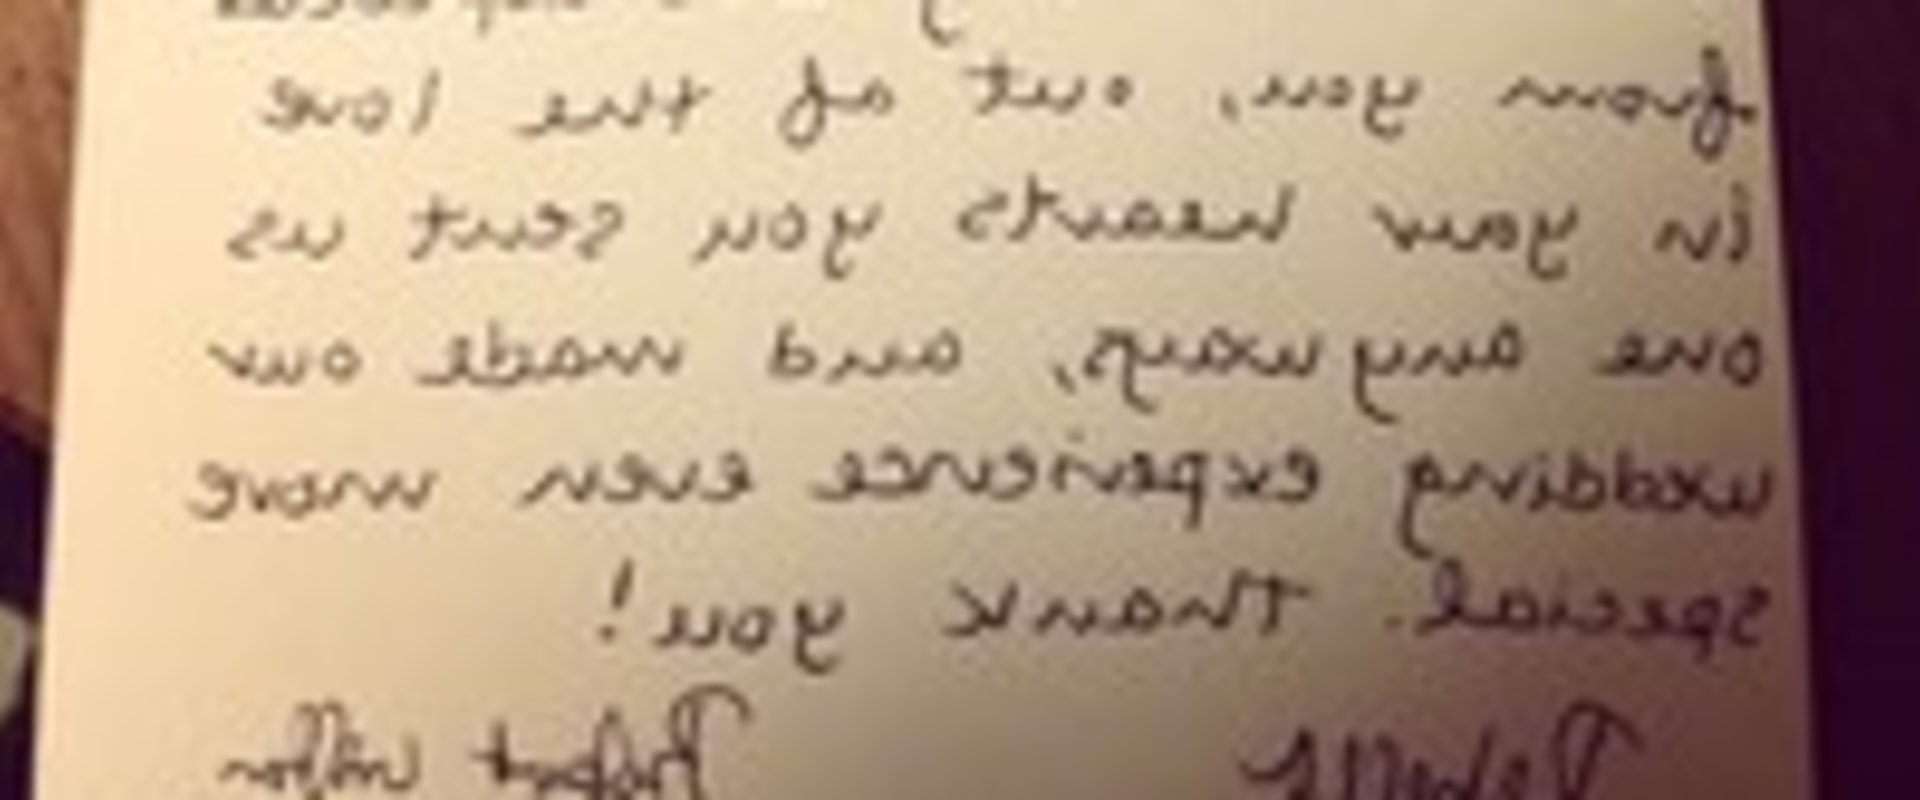 from you, out of the love
in your hearts you sent us
one anyways, and made our
wedding experience even more
special. Thank you!